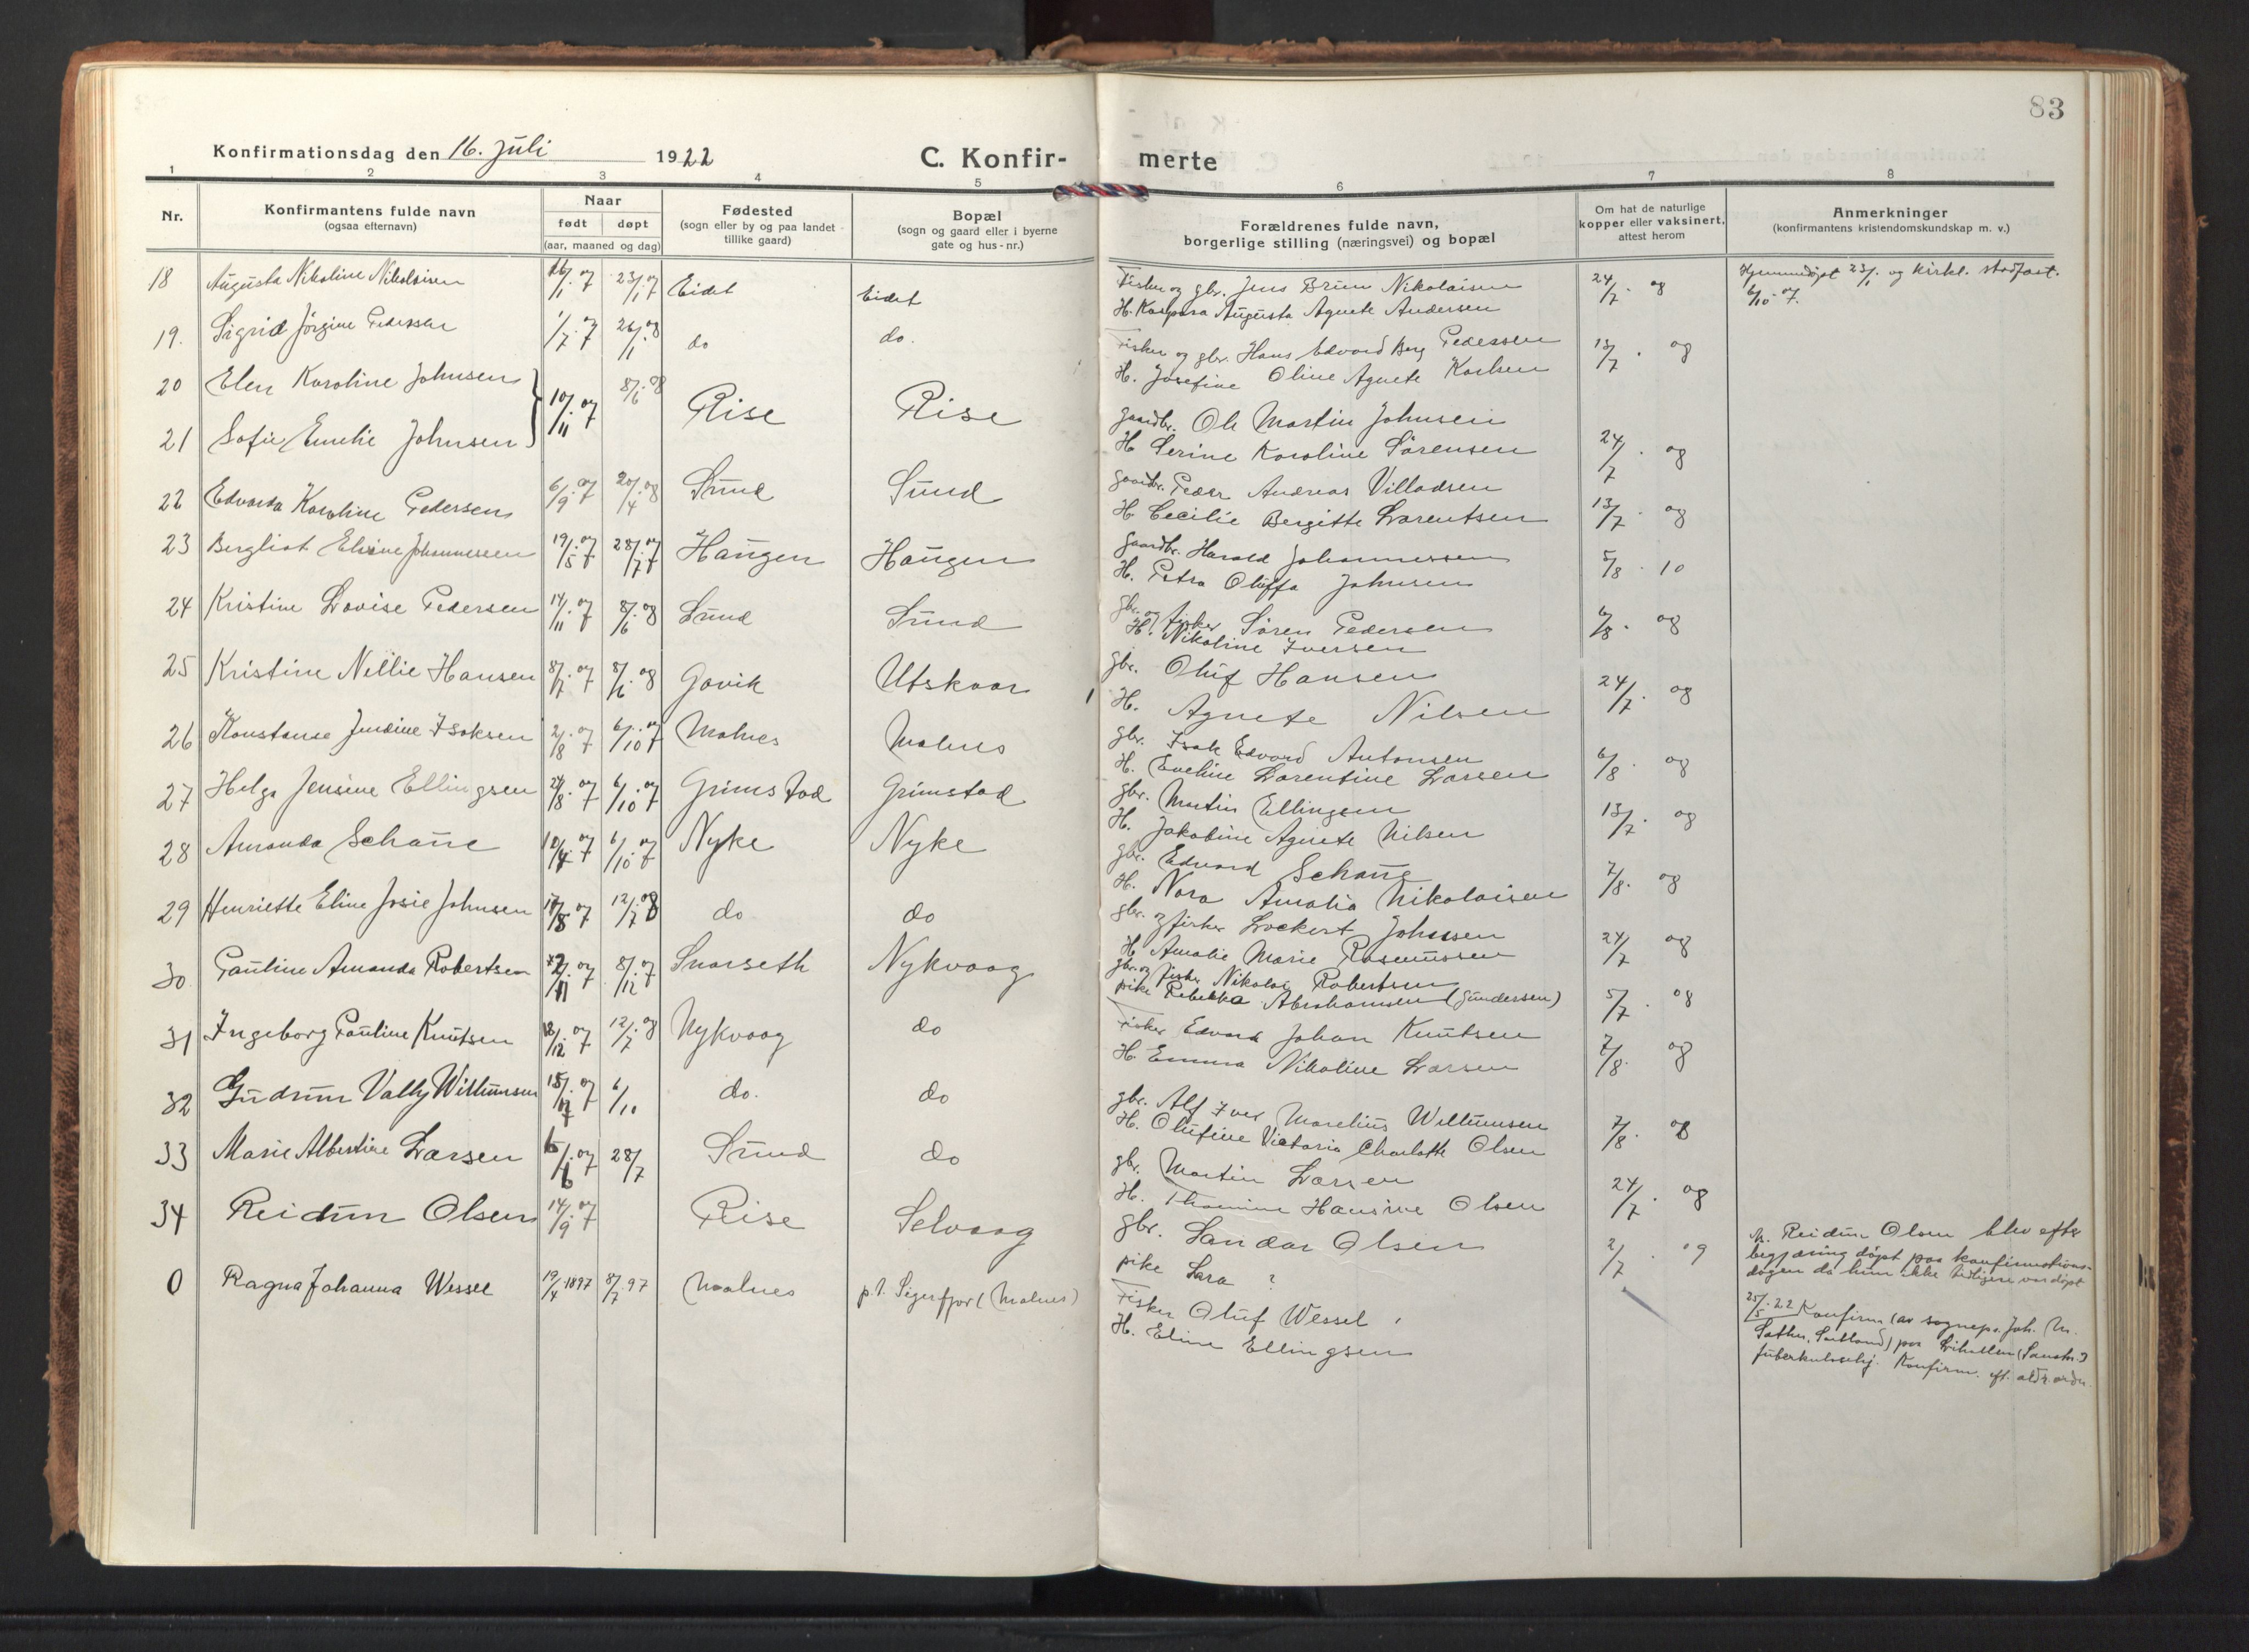 83
Konfirmationsdag den 16. Juli 1922 C. Konfirmerte
1 2 3 4 5 6 7 8
Nr. Konfirmantens fulde navn (ogsaa efternavn) Naar født døpt (aar, maaned og dag) Fødested (sogn eller by og paa landet tillike gaard) Bopæl (sogn og gaard eller i byerne gate og hus-nr.) Forældrenes fulde navn, borgerlige stilling (næringsvei) og bopæl Om hat de naturlige kopper eller vaksinert, attest herom Anmerkninger (konfirmantens kristendomskundskap m. v.)
18 Augusta Nikoline Nikolaisen 16/1. 07 23/1 07 Eidet Eidet Fisker og gbr. Jens Bruun Nikolaisen 24/7. 08 Hjemmedøpt 23/1. og kirkl. stadfæst.
H. Kaspara Augusta Agnete Andersen 6/10. 07.
19. Sigrid Jørgine Pedersen 1/7. 07 26/1. 08 do do. Fisker og gbr. Hans Edvard Berg Pedersen 13/7. 08
H. Josefine Oline Agnete Karlsen
20 Elen Karoline Johnsen 10/11. 07 8/6. 08 Rise Rise gaardbr. Ole Martin Johnsen
21 Sofie Emelie Johnsen H Serine Karoline Sørensen 24/7. 08
22 Edvarda Karoline Pedersen 6/9. 07 20/4. 08 Sund Sund gaardbr. Peder Andreas Villadsen
H Cecilie Bergitte Larentsen 13/7. 08
23 Bergliot Elvine Johannessen 19/5. 07 28/7. 07 Haugen Haugen gaardbr. Harald Johannessen 5/8. 10
H. Petra Oluffa Johnsen
24 Kristine Lovise Pedersen 14/11. 07 8/6. 08 Sund Sund gbr. og fisker Søren Pedersen 6/8. 08
H. Nikoline Iversen
25 Kristine Nellie Hansen 8/7. 07 8/6. 08 Gavik Utskaar gbr. Oluf Hansen 24/7. 08
H. Agnete Nilsen
26 Konstanse Jendine Isaksen 2/8. 07 6/10. 07 Malnes Malnes gbr. Isak Edvard Antonsen 6/8. 08
H. Eveline Larentine Larsen
27 Helga Jensine Ellingsen 24/8. 07 6/10. 07 Grimstad Grimstad gbr. Martin Ellingsen 13/7. 08
H. Jakobine Agnete Nilsen
28 Amanda Schaue 10/4. 07 6/10. 07 Nyke Nyke gbr. Edvard Schaue 7/8. 08
H. Nora Amalia Nikolaisen
29 Henriette Eline Josie Johnsen 07 12/7. 08 do do gbr. og fisker Lockert Johnsen 24/7 08
H Amalie Marie Rasmussen
30 Pauline Amanda Robertsen 07 8/12. 07 Snarseth Nykvaag gbr. og fisker Nikolai Robertsen 5/7. 08
pike Rebekka Abrahamsen (Gundersen)
31 Ingeborg Pauline Knutsen 18/12. 07 12/7. 08 Nykvaag do Fisker Edvard Johan Knutsen 7/8. 08
H. Emma Nikoline Larsen
32 Gudrun Vally Willumsen 6/10 do. do gbr. Alf Iver Marelius Willumsen 7/8. 08
H. Olufine Victoria Charlotte Olsen
33 Marie Albertine Larsen 07 28/7 Sund do gbr. Martin Larsen 24/7. 08
H. Thomine Hansine Olsen
34 Reidun Olsen 14/9. 07 Rise Selvaag gbr. Sandar Olsen 2/7. 09 Reidun Olsen blev efter
pike Sara ? begjæring døpt paa konfirmations-
dagen da hun ikke tidligere var døpt
0 Ragna Johanna Wessel 19/4 1897 8/7. 97 Malnes p.t. Sigerfjord (Malnes) Fisker Oluf Wessel 25/5. 22 Konfirm. (av sognepr. Joh. M.
H. Eline Ellingsen Sæther, Sortland) paa
tuberkulosehj. Konfirm. eft. aldr. ordn.